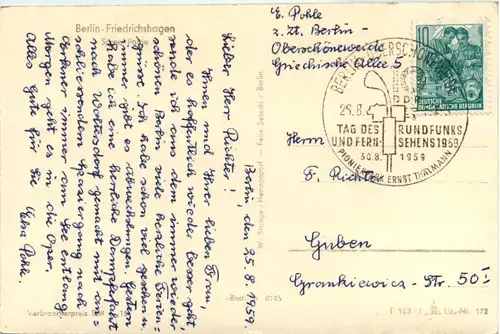 Berlin-Friedrichshagen
Berlin, den 25.8.1959.
Lieber Herr Richter!
Ihnen und Ihrer lieben Frau,
der es hoffentlich wieder besser geht
sende ich aus dem immer wieder
schönen Berlin viele herzliche Ferien-
grüsse. Ich habe schon viel gesehen u.
immer gibt es Abwechslungen. Gestern
habe ich eine herrliche Dampferfahrt
nach Woltersdorf gemacht mit an-
schliessendem Spaziergang nach
Berliner immer am See entlang.
Morgen geht es in die Oper.
Alles Gute für Sie Elsa Pohle.
Verbraucherpreis
W. Stange / Hennigsdorf - Felix Setecki / Berlin
Best. 0145
E. Pohle
z. Zt. Berlin-
Oberschöneweide
Griechische Allee 5
BERLIN-OBERSCHÖNEWEIDE
DDR
25.8.
TAG DES RUNDFUNKS
UND FERNSEHENS 1959
30.8. 1959
PIONIERPARK ERNST THÄLMANN
10
DEUTSCHE
DEMOKRATISCHE REPUBLIK
Herrn
F. Richter
Guben
Grankiewicz-Str. 50 I
Liz.-Nr. 172